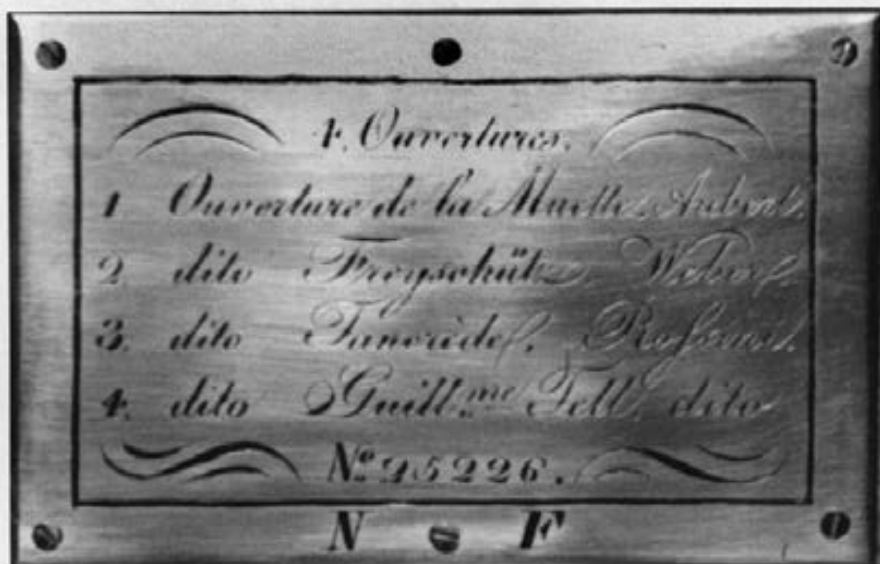 4. Ouvertures.
1 Ouverture de la Muette. Aubert.
2 dito Freyschütz. Weber.
3. dito Tancrède. Rossini.
4. dito Guill.me Tell. dito
No. 25226.
N F